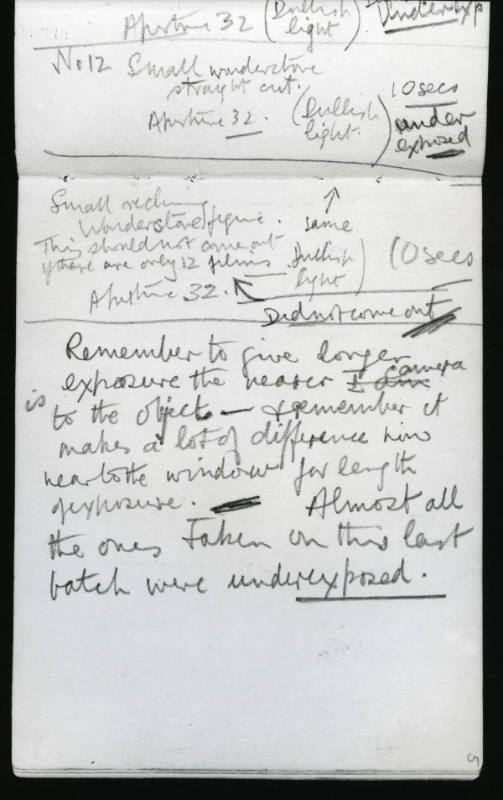 Aperture 32 (Dullish light) Underexp
No 12 Small wonderstone
straight cut.
Aperture 32. (Dullish light.) 10 secs under exposed
Small reclining
Wonderstone figure. ↑ same
This should not come out
if there are only 12 films Dullish light) 10 secs
Aperture 32.
Did not come out
Remember to give longer
exposure the nearer camera
is to the object — & remember it
makes a lot of difference how
near to the window for length
of exposure. — Almost all
the ones taken on this last
batch were underexposed.